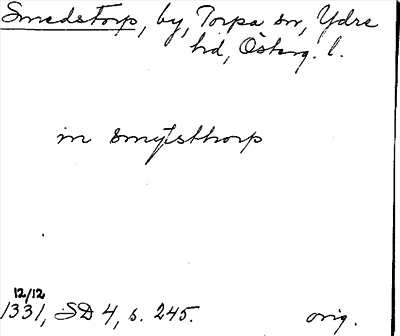 Smedstorp, by, Torpa sn, Ydre
hd, Österg. l.
in smytsthorp
12/12
1331, SD 4, s. 245. orig.